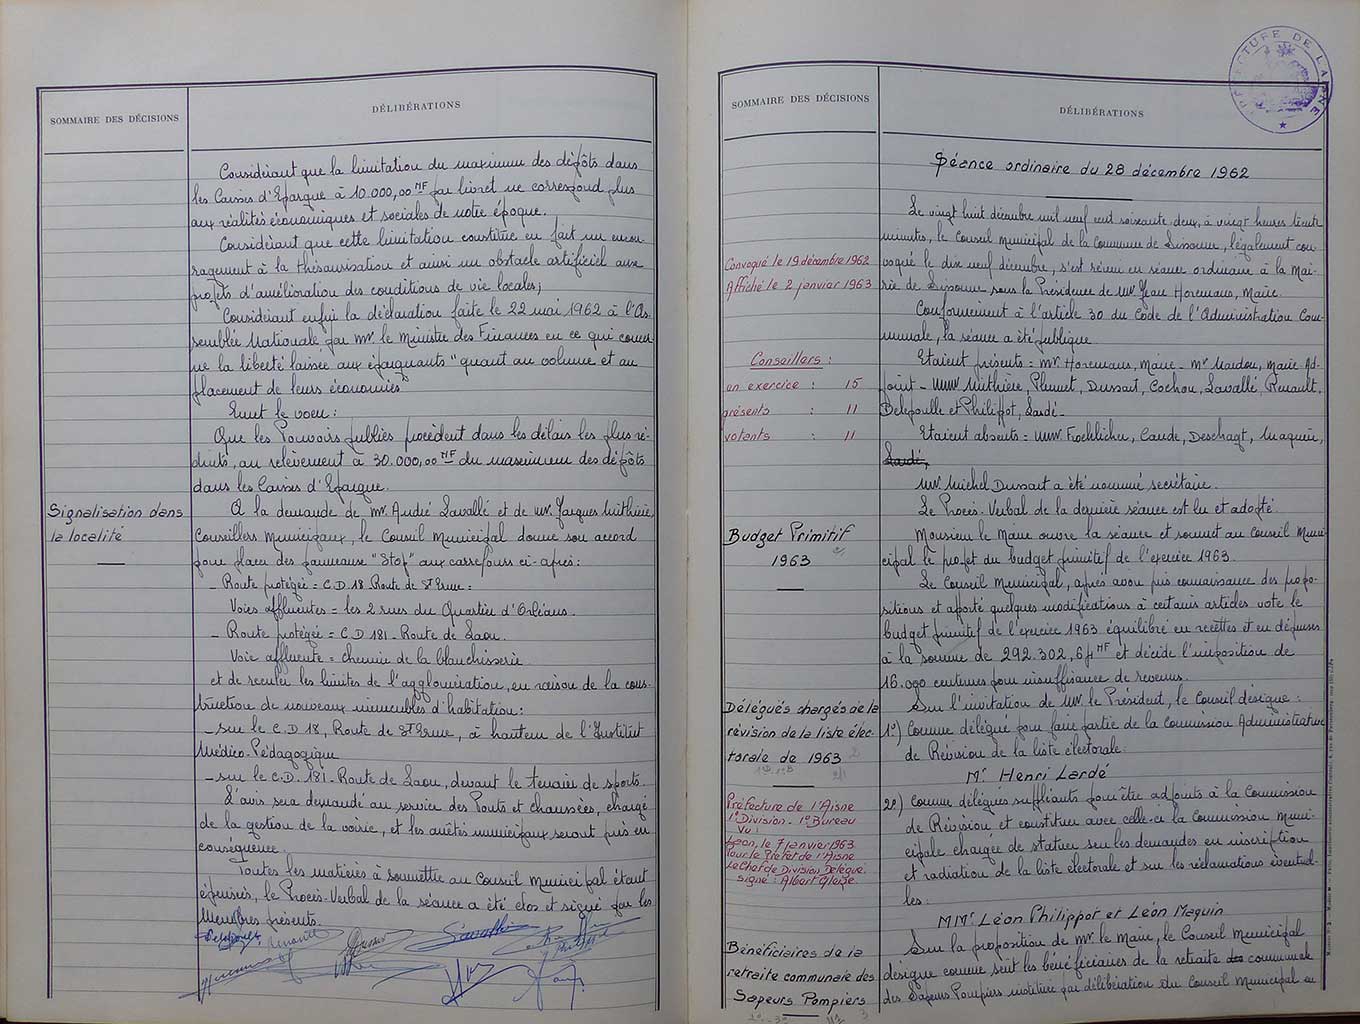 SOMMAIRE DES DÉCISIONS
DÉLIBÉRATIONS
Considérant que la limitation du maximum des dépôts dans
les Caisses d'Epargne à 10.000,00 NF par livret ne correspond plus
aux réalités économiques et sociales de notre époque.
Considérant que cette limitation constitue en fait un encou
ragement à la thésaurisation et aussi un obstacle artificiel aux
projets d'amélioration des conditions de vie locales;
Considérant enfin la déclaration faite le 22 mai 1962 à l'As-
semblée Nationale par Mr le Ministre des Finances en ce qui concer
ne la liberté laissée aux épargnants "quant au volume et au
placement de leurs économies"
Emet le voeu :
Que les Pouvoirs publics procèdent dans les délais les plus ré-
duits, au relèvement à 30.000,00 NF du maximum des dépôts
dans les Caisses d'Epargne.
Signalisation dans
la localité
A la demande de Mr. André Lavallé et de Mr. Jacques Mithière,
Conseillers Municipaux, le Conseil Municipal donne son accord
pour placer des panneaux "Stop" aux carrefours ci-après :
- Route protégée = C.D. 18 Route de St Erme :
Voies affluentes = les 2 rues du Quartier d'Orléans.
- Route protégée = C.D 181 - Route de Laon.
Voie affluente = chemin de la blanchisserie
et de reculer les limites de l'agglomération, en raison de la cons-
truction de nouveaux immeubles d'habitation :
- sur le C.D 18, Route de St Erme, à hauteur de l'Institut
Médico-Pédagogique
- sur le C.D. 181 - Route de Laon, devant le terrain de sports.
L'avis sera demandé au service des Ponts et chaussées, chargé
de la gestion de la voirie, et les arrêtés municipaux seront pris en
conséquence.
Toutes les matières à soumettre au Conseil Municipal étant
épuisées, le Procès-Verbal de la séance a été clos et signé par les
Membres présents.
SOMMAIRE DES DÉCISIONS
DÉLIBÉRATIONS
PRÉFECTURE DE L'AISNE
Séance ordinaire du 28 décembre 1962
Le vingt huit décembre mil neuf cent soixante deux, à vingt heures trente
minutes, le Conseil Municipal de la Commune de Sissonne, légalement con-
voqué le dix neuf décembre, s'est réuni en séance ordinaire à la Mai-
rie de Sissonne sous la Présidence de Mr. Jean Horemans, Maire.
Convoqué le 19 décembre 1962
Affiché le 2 janvier 1963
Conformément à l'article 30 du Code de l'Administration Com-
munale, la séance a été publique.
Conseillers :
en exercice : 15
présents : 11
votants : 11
Etaient présents = Mr. Horemans, Maire - Mr Mardou, Maire Ad-
joint - MMr Mithière, Plumet, Dussart, Cochon, Lavallé, Renault,
Delepoulle et Philippot, Lardé -
Etaient absents = MMr. Froehlicher, Caude, Deschagt, Maquin,
Lardé,
Mr. Michel Dussart a été nommé secrétaire.
Le Procès-Verbal de la dernière séance est lu et adopté.
Budget Primitif
1963
Monsieur le Maire ouvre la séance et soumet au Conseil Muni-
cipal le projet du budget primitif de l'exercice 1963.
Le Conseil Municipal, après avoir pris connaissance des propo-
sitions et apporté quelques modifications à certains articles vote le
budget primitif de l'exercice 1963 équilibré en recettes et en dépenses
à la somme de 292.302,64 NF et décide l'imposition de
16.000 centimes pour insuffisance de revenus.
Délégués chargés de la
révision de la liste élec-
torale de 1963
Sur l'invitation de Mr. le Président, le Conseil désigne :
1°) Comme délégué pour faire partie de la Commission Administrative
de Révision de la liste électorale.
Mr Henri Lardé
Préfecture de l'Aisne
1° Division - 1° Bureau
Vu :
Laon, le 7 janvier 1963
Pour le Préfet de l'Aisne
Le Chef de Division Délégué.
signé : Albert Gleize.
2°) Comme délégués suppléants pour être adjoints à la Commission
de Révision et constituer avec celle-ci la Commission Muni-
cipale chargée de statuer sur les demandes en inscription
et radiation de la liste électorale et sur les réclamations éventuel-
les.
MMr. Léon Philippot et Léon Maquin
Bénéficiaires de la
retraite communale des
Sapeurs Pompiers
Sur la proposition de Mr le Maire, le Conseil Municipal
désigne comme suit les bénéficiaires de la retraite communale
des Sapeurs Pompiers instituée par délibération du Conseil Municipal en